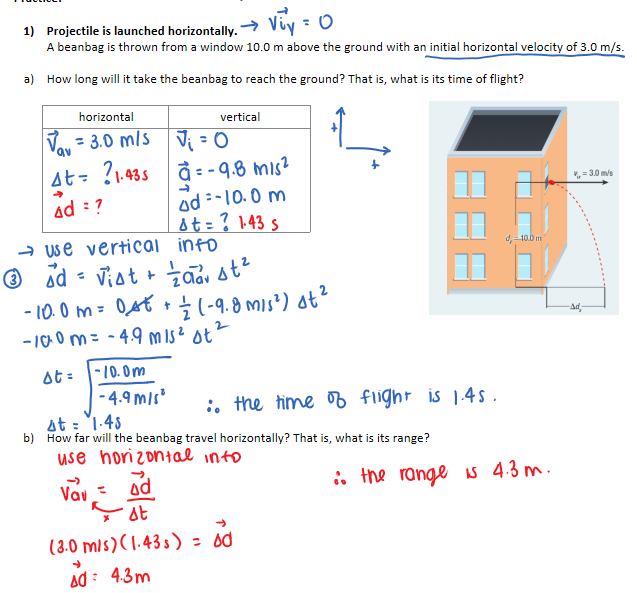 1) Projectile is launched horizontally. → v⃗iy = 0
A beanbag is thrown from a window 10.0 m above the ground with an initial horizontal velocity of 3.0 m/s.
a) How long will it take the beanbag to reach the ground? That is, what is its time of flight?
horizontal
v⃗av = 3.0 m/s
Δt = ? 1.43s
Δd⃗ = ?
vertical
v⃗i = 0
a⃗ = -9.8 m/s²
Δd⃗ = -10.0 m
Δt = ? 1.43 s
+
+
vₓ = 3.0 m/s
dᵧ = 10.0 m
Δdₓ
→ use vertical info
③ Δd⃗ = v⃗iΔt + ½a⃗av Δt²
-10.0 m = 0Δt + ½ (-9.8 m/s²) Δt²
-10.0 m = -4.9 m/s² Δt²
Δt = √(-10.0m / -4.9 m/s²)
Δt = 1.4s
∴ the time of flight is 1.4s.
b) How far will the beanbag travel horizontally? That is, what is its range?
use horizontal info
v⃗av = Δd⃗ / Δt
×
(3.0 m/s)(1.43s) = Δd⃗
Δd⃗ = 4.3m
∴ the range is 4.3 m.